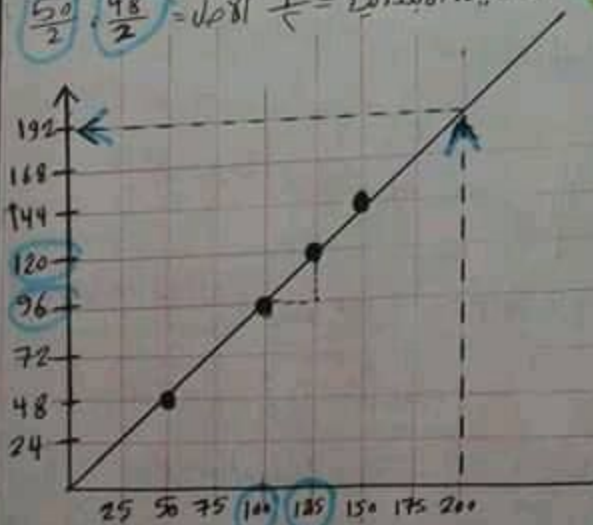 50/2 , 48/2 = الأصل
192
168
144
120
96
72
48
24
25 50 75 100 125 150 175 200